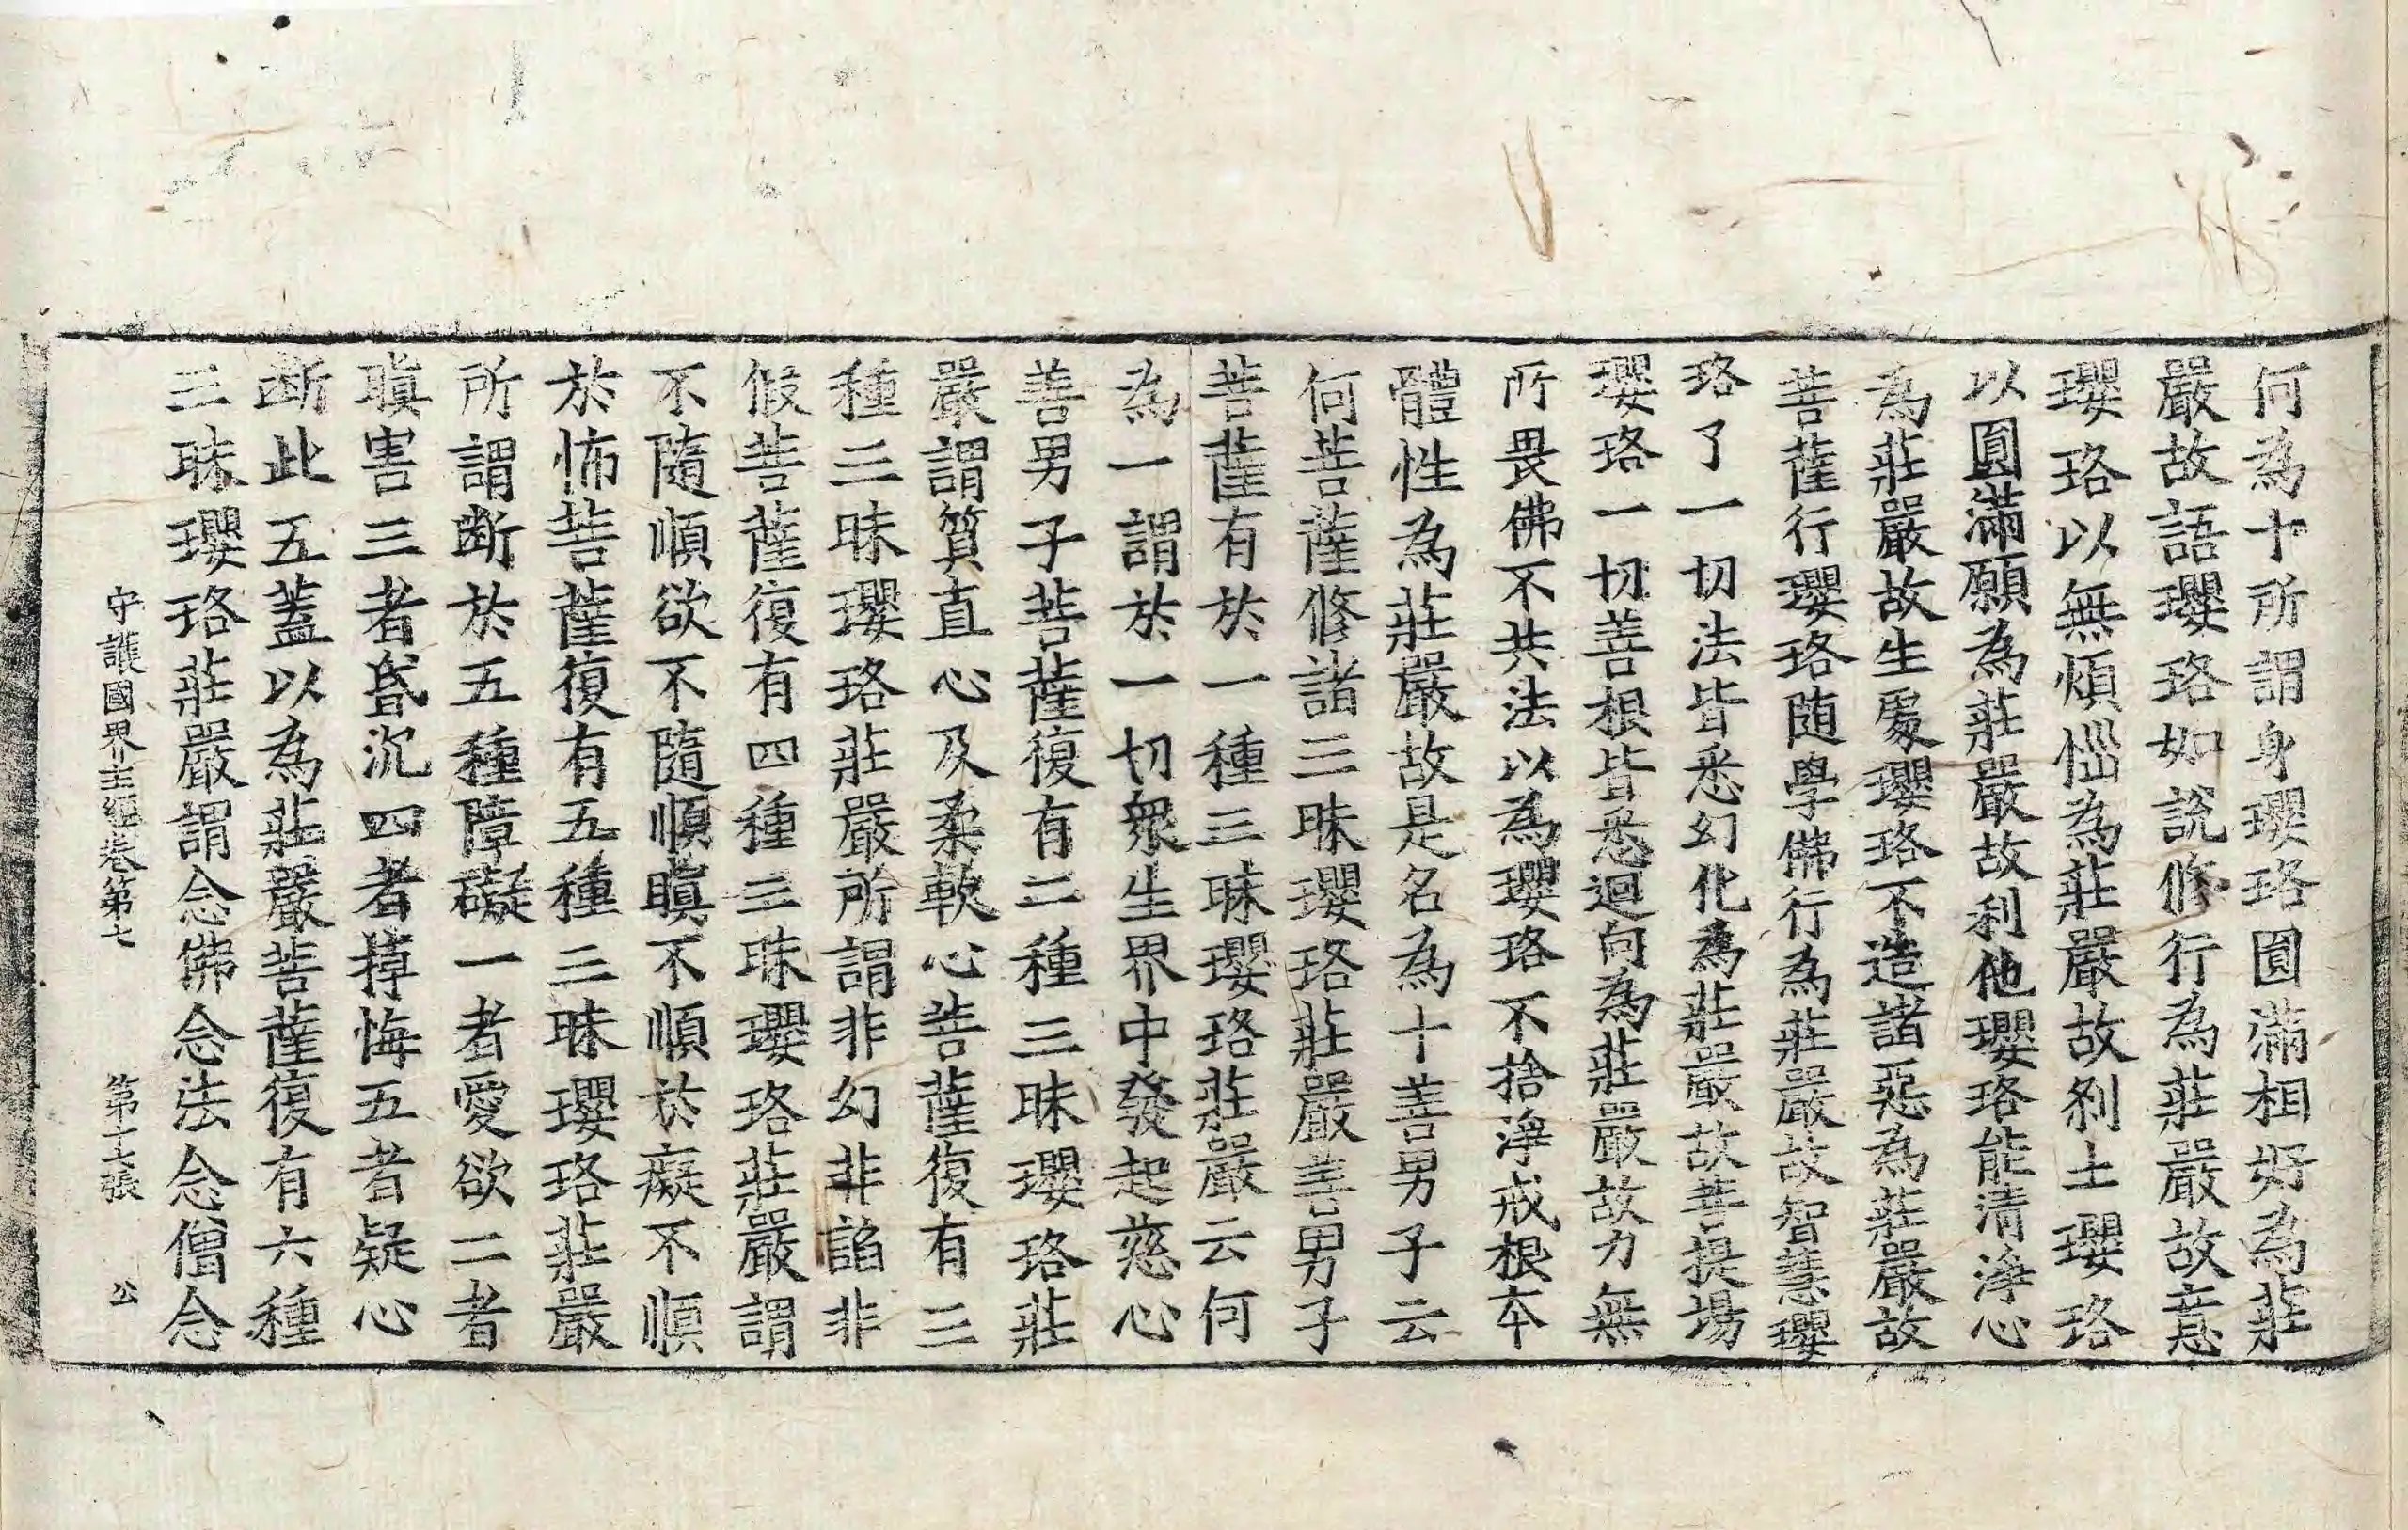 何為十所謂身瓔珞圓滿相好為莊
嚴故語瓔珞如說修行為莊嚴故意
瓔珞以無煩惱為莊嚴故剎土瓔珞
以圓滿願為莊嚴故利他瓔珞能清淨心
為莊嚴故生處瓔珞不造諸惡為莊嚴故
菩薩行瓔珞随學佛行為莊嚴故智慧瓔
珞了一切法皆悉幻化為莊嚴故菩提場
瓔珞一切善根皆悉迴向為莊嚴故力無
所畏佛不共法以為瓔珞不捨淨戒根本
體性為莊嚴故是名為十善男子云
何菩薩修諸三昧瓔珞莊嚴善男子
菩薩有於一種三昧瓔珞莊嚴云何
為一謂於一切衆生界中發起慈心
善男子菩薩復有二種三昧瓔珞莊
嚴謂質直心及柔軟心菩薩復有三
種三昧瓔珞莊嚴所謂非幻非諂非
假菩薩復有四種三昧瓔珞莊嚴謂
不隨順欲不隨順瞋不順於癡不順
於怖菩薩復有五種三昧瓔珞莊嚴
所謂断於五種障礙一者愛欲二者
瞋害三者昏沉四者掉悔五者疑心
断此五蓋以為莊嚴菩薩復有六種
三昧瓔珞莊嚴謂念佛念法念僧念
守護國界主經卷第七 第十七張 公